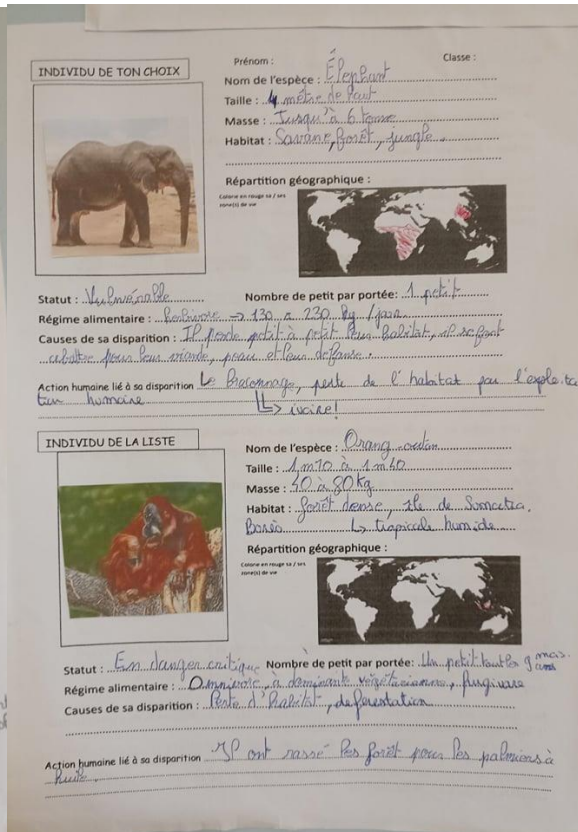 Prénom : Classe :
INDIVIDU DE TON CHOIX
Nom de l'espèce : Éléphant
Taille : 4 mètre de haut
Masse : Jusqu'à 6 tonne
Habitat : Savane, forêt, jungle.
Répartition géographique :
Colorie en rouge sa / ses
zone(s) de vie
Statut : Vulnérable Nombre de petit par portée: 1 petit
Régime alimentaire : herbivore → 130 a 230 kg /jour
Causes de sa disparition : Il perde petit à petit leur habitat, il se font
abattre pour leur viande, peau et leur défense.
Action humaine lié à sa disparition Le braconnage, perte de l'habitat par l'exploita
tion humaine ↳ ivoire!
INDIVIDU DE LA LISTE
Nom de l'espèce : Orang-outan
Taille : 1m10 à 1m40
Masse : 40 à 80 kg
Habitat : forêt dense, île de Somatra,
Boréo ↳ tropicale humide
Répartition géographique :
Colorie en rouge sa / ses
zone(s) de vie
Statut : En danger critique Nombre de petit par portée: Un petit tout les 9 mois.
ans
Régime alimentaire : Omnivore, à dominante végétarienne, frugivore
Causes de sa disparition : Perte d'habitat, deforestation
Action humaine lié à sa disparition Il ont rassé les forêt pour les palmiers à
huile.